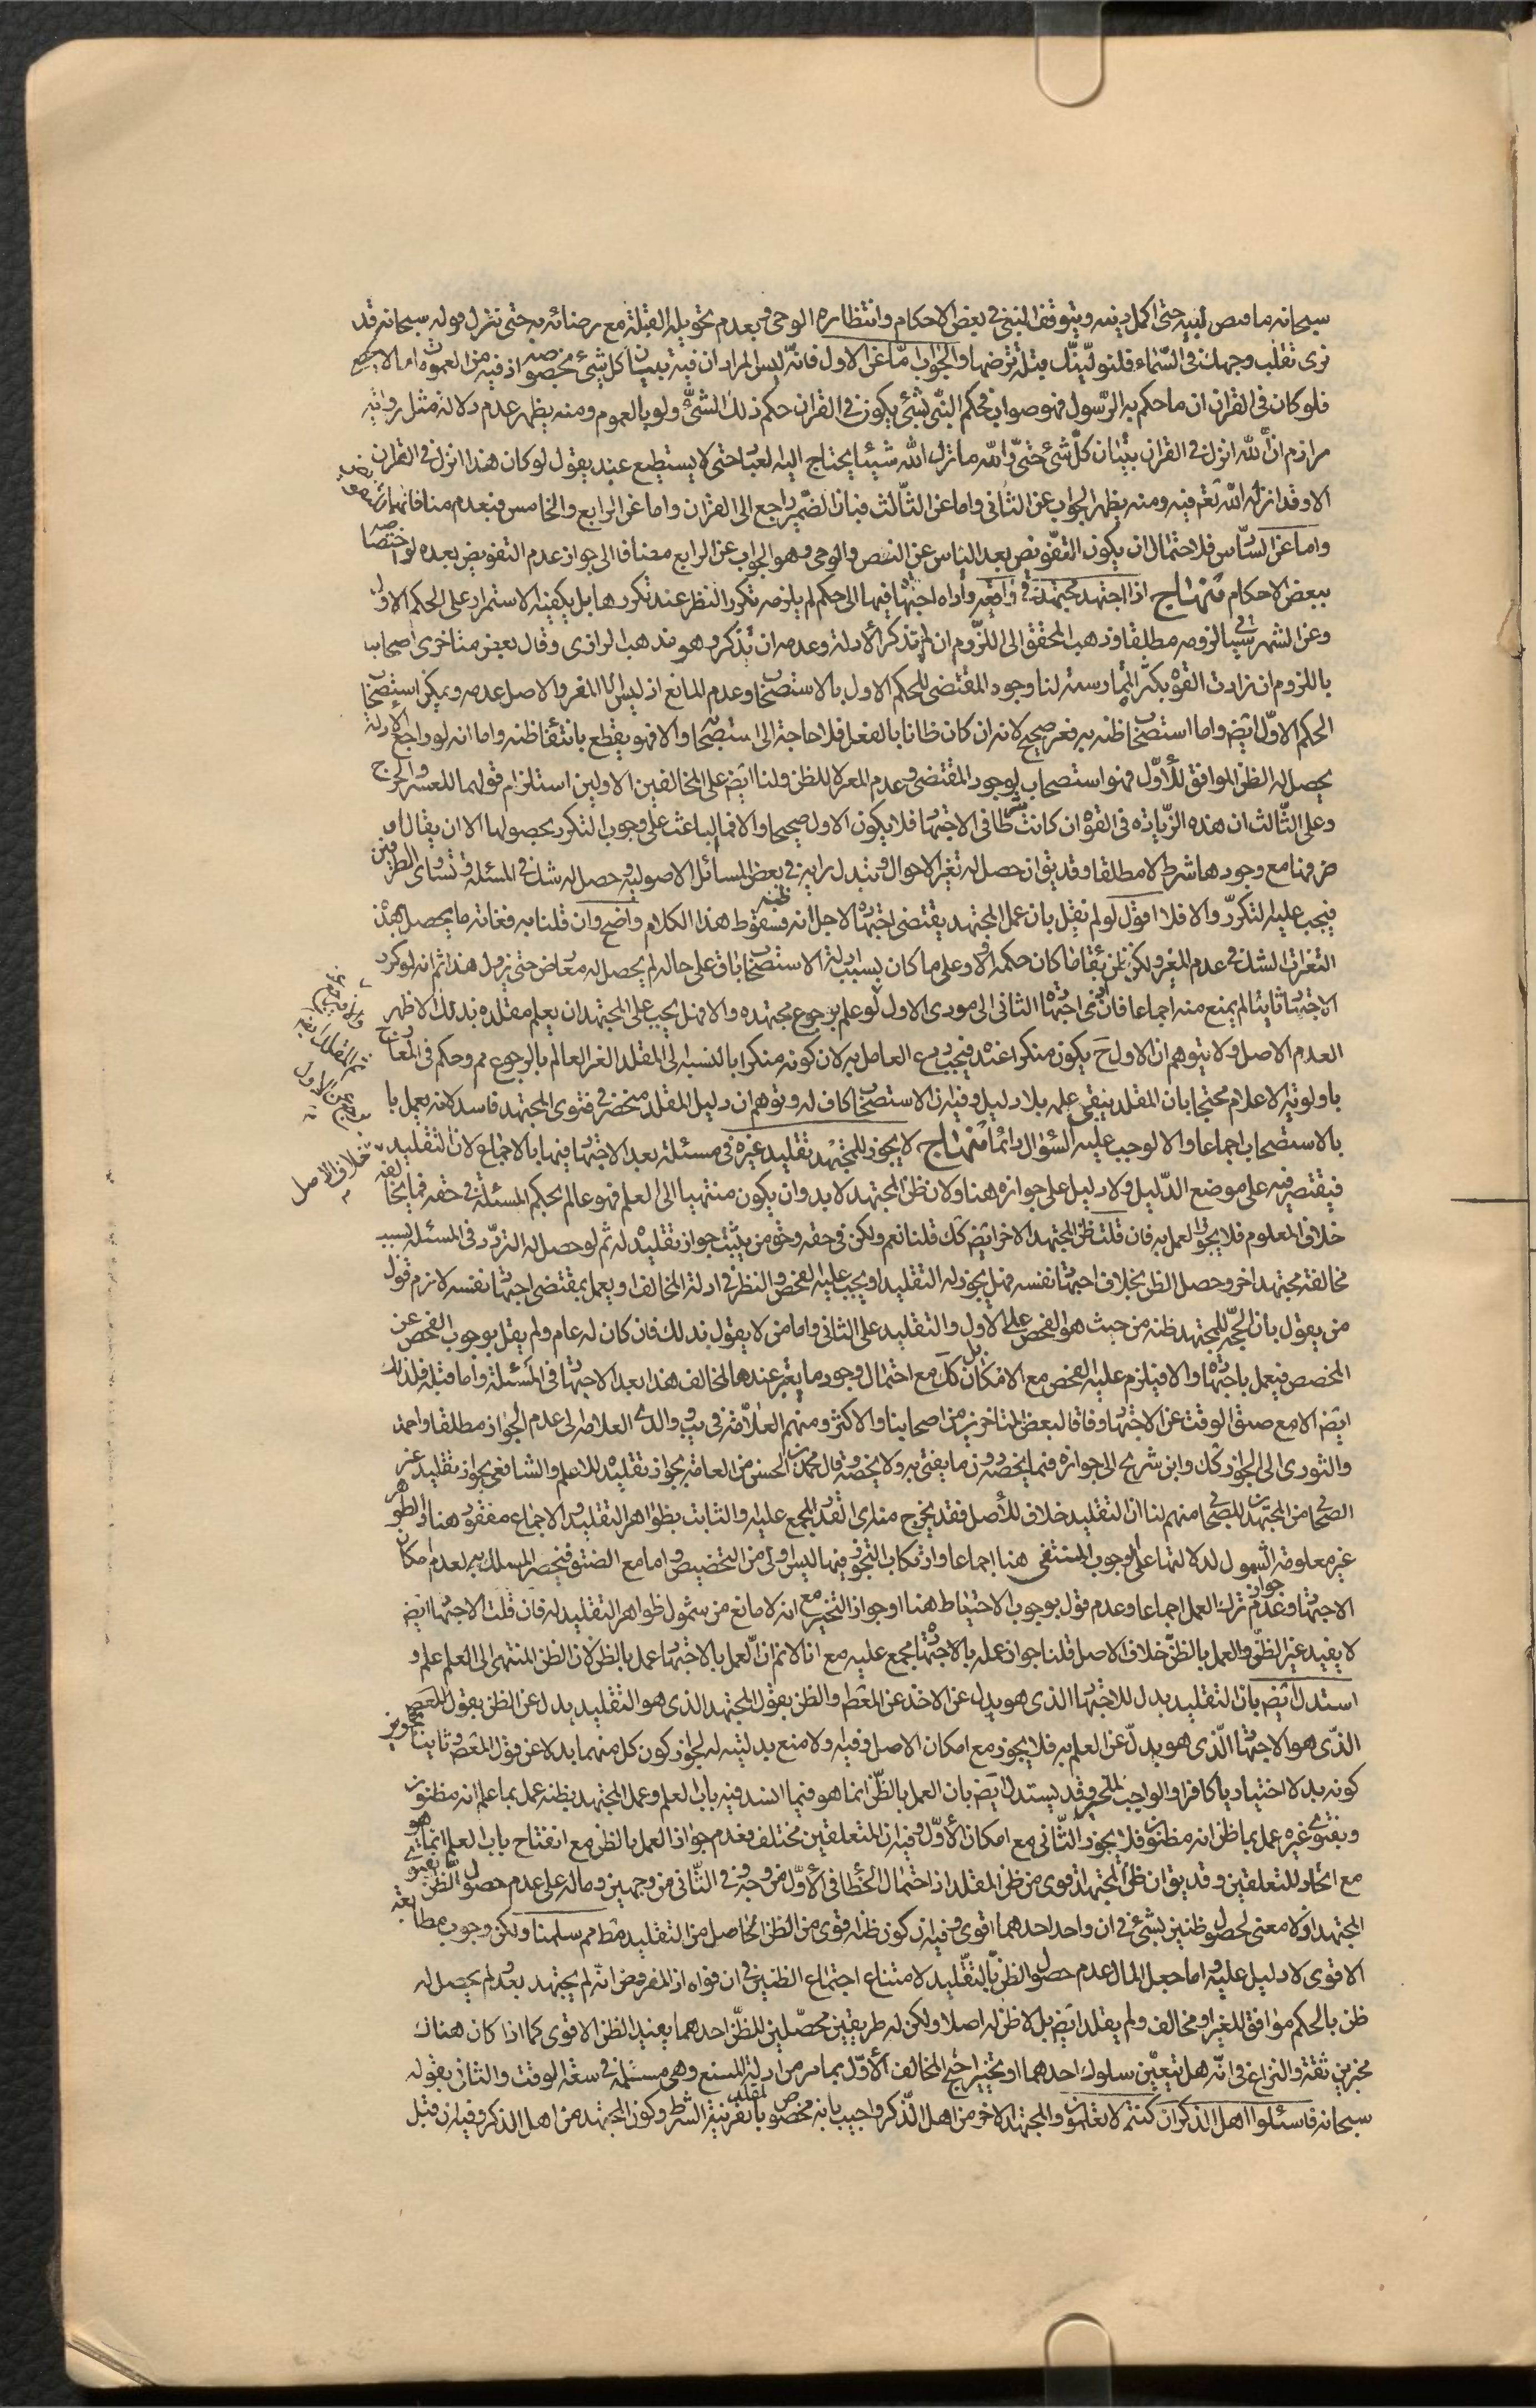 سبحانه ما قبض نبيه حتى اكمل دينه وبتوقف النبي في بعض الاحكام وانتظاره الوحي وبعدم تحويله القبلة مع رضائه به حتى نزل قوله سبحانه قد
نرى تقلب وجهك في السّماء فلنولّينّك قبلة ترضها والجواب امّا عن الاول فانّه ليس المراد ان فيه تبيان كل شيء بخصوصه اذ فيه من العمومات ما لا يحصى
فلو كان في القران ان ما حكم به الرّسول فهو صواب فحكم النبّي بشئ يكون في القران حكم ذلك الشيّء ولو بالعموم ومنه يظهر عدم دلالة مثل رواية
مرازم انّ الله انزل في القران تبيان كلّ شئ حتىّ والله ما ترك الله شيئا يحتاج اليه العباد حتى لا يستطيع عبد يقول لو كان هذا انزل في القران
الا وقد انزله الله تعم فيه ومنه يظهر الجواب عن الثاني واما عن الثّالث فبان الضّمير راجع الى القران واما عن الرابع والخامس فبعدم منافاتهما
واما عن السّادس فلاحتمال ان يكون التفّويض بعد الياس عن النص والوحي وهو الجواب عن الرابع مضافا الى جواز عدم التفويض بعده لو اختصاصه
ببعض الاحكام منهاج اذا اجتهد مجتهد في واقعة وأداه اجتهاده فيها الى حكم لم يلزمه تكرر النظر عند تكررها بل يكفيه الاستمرار على الحكم الاول
وعن الشهرستاني لزومه مطلقا وذهب المحقق الى اللزّوم ان لم يتذكر الادلة وعدمه ان تذكر وهو مذهب الرازي وقال بعض متاخرى اصحابنا
باللزوم ان زادت القوه بكثرة الممارسة لنا وجود المقتضى للحكم الاول بالاستصحاب وعدم المانع اذ ليس الا المغير والاصل عدمه ويمكن استصحاب
الحكم الاوّل ايضا واما استصحاب ظنه به فغير صحيح لانه ان كان ظانا بالفعل فلا حاجة الى استصحابه والا فهو يقطع بانتفاء ظنه واما انه لو راجع الادلة
يحصل له الظن الموافق للأوّل فهو استصحاب لوجود المقتضى وعدم المغير لا للظن ولنا ايضا على المخالفين الاولين استلزام قولهما للعسر والحرج
وعلى الثّالث ان هذه الزّيادة في القوه ان كانت شرطا في الاجتهاد فلا يكون الاول صحيحا والا فما الباعث على وجوب التكرر بحصولها الا ان يقال
وجودها شرط لا مطلقا وقد يق ان حصل له تغير الاحوال وتبدل رايه في بعض المسائل الاصولية وحصل له شك في المسئلة وتساوى الطرفين
فيجب عليه لتكررّ والا فلا اقول لو لم نقل بان عمل المجتهد بمقتضى اجتهاده لاجل انه ظنه فسقوط هذا الكلام واضح وان قلنا به فغاية ما يحصل بهذه
التغيرات الشك في عدم المغير ولكن كان حكمه او لا وعلى ما كان بسبب ادلة الاستصحاب باق على حاله لم يحصل له معارض حتى يزول هذا ثم انه لو كرر
الاجتهاد ثانيا لم يمنع منه اجماعا فان ادى اجتهاده الثاني الى مودى الاول لو علم برجوع مجتهده والا فهل يجب على المجتهد ان يعلم مقلده بذلك الاظهر
العدم للاصل ولا يتوهم ان الاول ح يكون منكرا عنده فيجب ردع العامل به لان كونه منكرا بالنسبة الى المقلد الغير العالم بالرجوع مم وحكم في المعارج
باولوية الاعلام محتجا بان المقلد يبقى علمه بلا دليل وفيه ان الاستصحاب كاف له وتوهم ان دليل المقلد منحصر في فتوى المجتهد فاسد لانه يعمل
بالاستصحاب اجماعا والا لوجب عليه السؤال دائما منهاج لا يجوز للمجتهد تقليد غيره في مسئلة بعد الاجتهاد فيها بالاجماع لان التقليد خلاف الاصل
فيقتصر فيه على موضع الدّليل ولا دليل على جوازه هنا ولان ظن المجتهد لا بد وان يكون منتهيا الى العلم فهو عالم بحكم المسئلة في حقه فما يخالفه
خلاف المعلوم فلا يجوز العمل به فان قلت ظن المجتهد الاخر ايضا كك قلنا نعم ولكن في حقه وحق من يثبت جواز تقليده له ثم لو حصل له التردّد في المسئلة بسبب
مخالفة مجتهد اخر وحصل الظن بخلاف اجتهاد نفسه فهل يجوز له التقليد او يجب عليه الفحص والنظر في ادلة المخالف او يعمل بمقتضى اجتهاد نفسه لازم قول
من يقول بان الحجّة للمجتهد ظنه من حيث هو الفحص على الاول والتقليد على الثاني واما من لا يقول بذلك فان كان له عام ولم يقل بوجوب الفحص عن
المخصص فيعمل باجتهاده والا فيلزم عليه الفحص مع الامكان بل كل مع احتمال وجود ما يتغير عند المخالف هذا بعد الاجتهاد في المسئلة واما قبله فلذلك
ايضا الا مع ضيق الوقت عن الاجتهاد وفاقا لبعض المتاخرين من اصحابنا والاكثر ومنهم العلاّمة في يب ووالدى العلامة الى عدم الجواز مطلقا واحمد
والثوري الى الجواز كك وابن شريح الى جوازه فيما يخصه دون ما يفتى به ولا يخصه وقال محمد بن الحسن من العامة بجواز تقليده للاعلم والشافعي بجواز تقليد غير
الصحابي من المجتهدين للصحابي منهم لنا ان التقليد خلاف للأصل فقد يخرج منه القدر المجمع عليه والثابت بظواهر التقليد والاجماع مفقود هنا والظواهر
غير معلومة الشمول لدلالتها على الوجوب المنتفى هنا اجماعا وارتكاب التجوز فيها ليس اولى من التخصيص واما مع الضيق فينحصر المسلك به لعدم امكان
الاجتهاد وعدم جواز ترك العمل اجماعا وعدم قول بوجوب الاحتياط هنا او جواز التخيير مع انه لا مانع من شمول ظواهر التقليد له فان قلت الاجتهاد ايضا
لا يفيد غير الظنّ والعمل بالظنّ خلاف الاصل قلنا جواز عمله بالاجتهاد مجمع عليه مع انا لانم ان العمل بالاجتهاد عمل بالظن لان الظن المنتهى الى العلم علم و
استدل ايضا بان التقليد بدل للاجتهاد الذي هو بدل عن الاخذ عن المعصوم والظن بقول المجتهد الذي هو التقليد بدل عن الظن بقول المعصوم
الذّى هو الاجتهاد الّذى هو بدلّ عن العلم به فلا يجوز مع امكان الاصل وفيه ولا منع بدليته له لجواز كون كل منهما بدلا عن قول المعصوم وثانيا تجويز
كونه بدلا اختياريا كافراد الواجب المخير وقد يستدل ايضا بان العمل بالظنّ انما هو فيما انسد فيه باب العلم وعمل المجتهد بظنه عمل بما علم انه مظنون
وبفتوى غيره عمل بما ظن انه مظنون فلا يجوز الثّاني مع امكان الأوّل وفيه ان المتعلقين مختلف فعدم جواز العمل بالظن مع انفتاح باب العلم انما هو
مع اتحاد المتعلقين وقد يق ان ظن المجتهد اقوى من ظن المقلد اذ احتمال الخطا في الأوّل من وجه وفي الثّاني من وجهين وماله على عدم حصول الظن بفتوى
المجتهد اولا معنى لحصول ظنين بشيء في ان واحد احدهما اقوى وفيه ان كون ظنه اقوى من الظن الحاصل من التقليد مطلقا مم سلمنا ولكن وجوب مطابعة
الاقوى لا دليل عليه واما جعل المال عدم حصول الظن بالتقّليد لامتناع اجتماع الظنين في ان فواه اذ المفروض انه لم يجتهد بعد ولم يحصل له
ظن بالحكم موافق للغير او مخالف ولم يقلد ايضا بل لا ظن له اصلا ولكن له طريقين محصّلين للظنّ احدهما يفيد الظن الاقوى كما اذا كان هناك
مخبرين ثقة والنزاع في انّه هل يتعيّن سلوك احدهما او يتخير احتج المخالف الأوّل بما مر من ادلة المنع وهي مسئلة في سعة الوقت والثاني بقوله
سبحانه فاسئلوا اهل الذكر ان كنتم لا تعلمون والمجتهد الاخر من اهل الذّكر واجيب بانه مخصوص بالمقلد بقرينة الشرط وكون المجتهد من اهل الذكر وفيه ان قبل